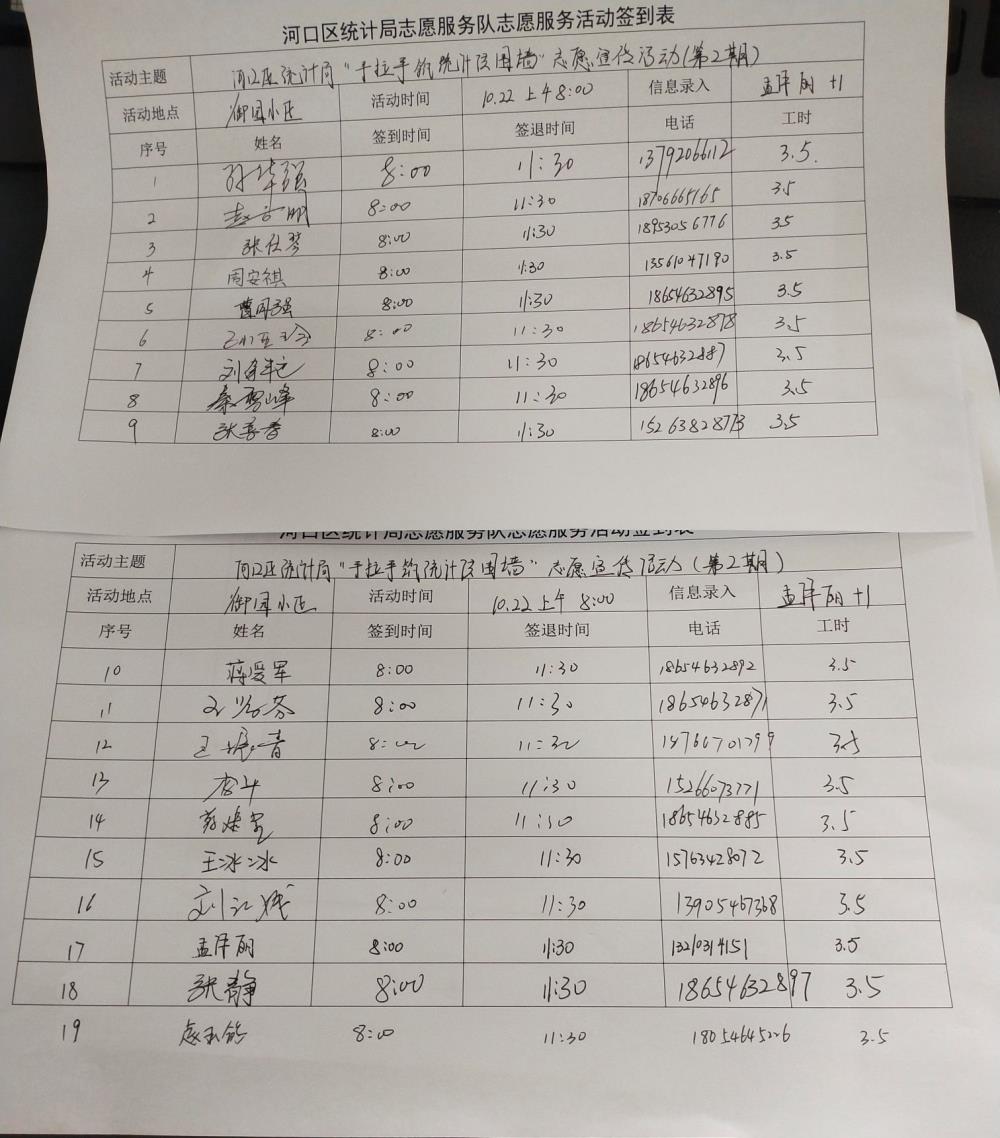 河口区统计局志愿服务队志愿服务活动签到表
活动主题 河口区统计局"手拉手 筑统计法围墙"志愿宣传活动(第2期)
活动地点 御园小区 活动时间 10.22 上午8:00 信息录入 孟泽丽 +1
序号 姓名 签到时间 签退时间 电话 工时
1 8:00 11:30 13792066112 3.5
2 8:00 11:30 18706665165 3.5
3 张仕琴 8:00 11:30 18953056776 3.5
4 周安祺 8:00 11:30 13561047190 3.5
5 曹同强 8:00 11:30 18654632895 3.5
6 8:00 11:30 18654632878 3.5
7 8:00 11:30 18654632887 3.5
8 秦雪峰 8:00 11:30 18654632896 3.5
9 8:00 11:30 15263828773 3.5
河口区统计局志愿服务队志愿服务活动签到表
活动主题 河口区统计局"手拉手 筑统计法围墙"志愿宣传活动(第2期)
活动地点 御园小区 活动时间 10.22 上午 8:00 信息录入 孟泽丽 +1
序号 姓名 签到时间 签退时间 电话 工时
10 蒋爱军 8:00 11:30 18654632892 3.5
11 8:00 11:30 18654632871 3.5
12 8:00 11:30 3.5
13 8:00 11:30 15266073771 3.5
14 8:00 11:30 18654632885 3.5
15 王冰冰 8:00 11:30 15763428072 3.5
16 8:00 11:30 13905467368 3.5
17 孟泽丽 8:00 11:30 13210314151 3.5
18 张静 8:00 11:30 18654632897 3.5
19 8:00 11:30 3.5